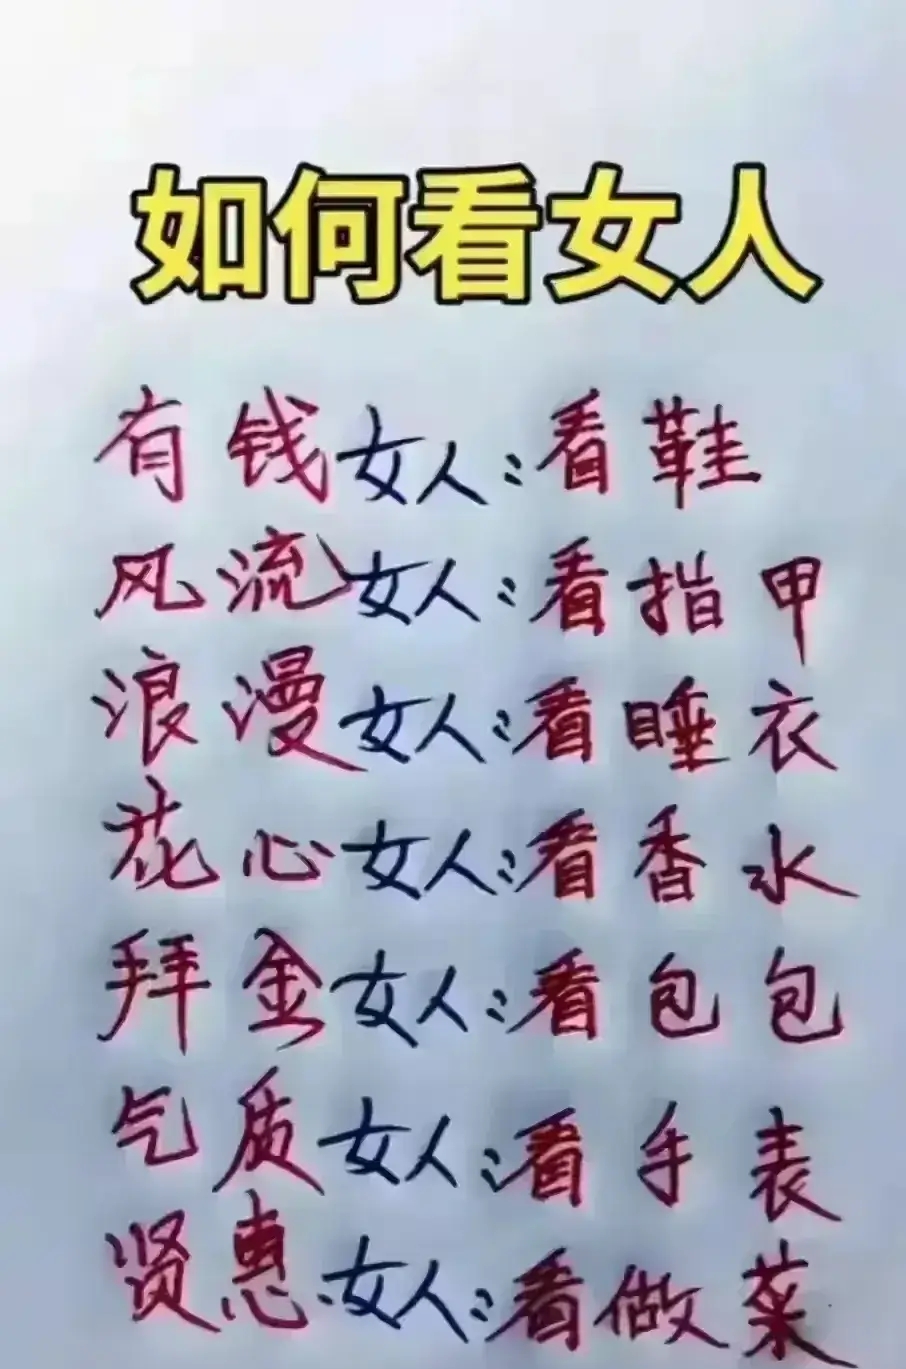 如何看女人
有钱女人:看鞋
风流女人:看指甲
浪漫女人:看睡衣
花心女人:看香水
拜金女人:看包包
气质女人:看手表
贤惠女人:看做菜